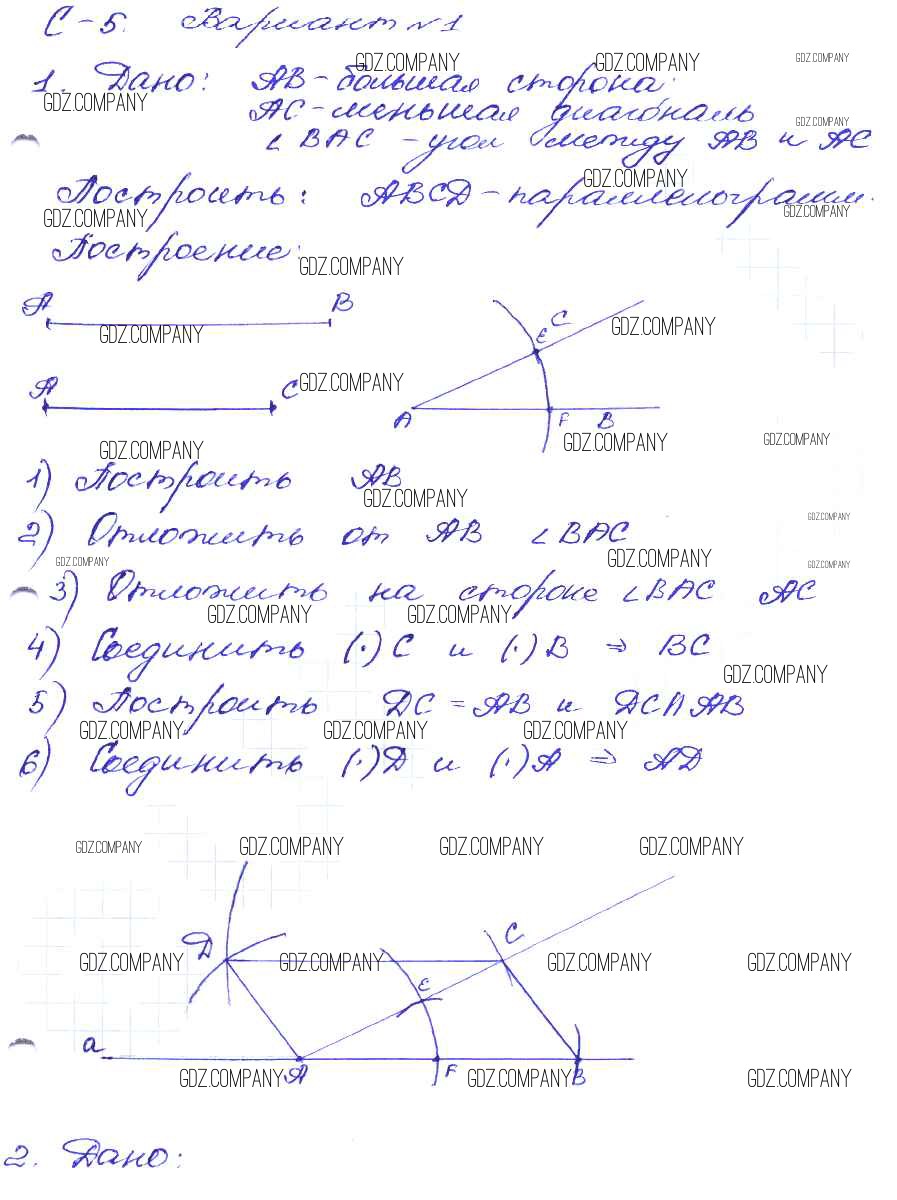 С-5. Вариант №1
1. Дано: AB - большая сторона.
AC - меньшая диагональ
∠BAC - угол между AB и AC
Построить: ABCD - параллелограмм.
Построение:
A B
A C
A E C F B
1) Построить AB
2) Отложить от AB ∠BAC
3) Отложить на стороне ∠BAC AC
4) Соединить (·)C и (·)B ⇒ BC
5) Построить DC = AB и DC∩AB
6) Соединить (·)D и (·)A ⇒ AD
D C
E
a A F B
2. Дано:
GDZ.COMPANY GDZ.COMPANY GDZ.COMPANY
GDZ.COMPANY
GDZ.COMPANY
GDZ.COMPANY
GDZ.COMPANY GDZ.COMPANY
GDZ.COMPANY
GDZ.COMPANY GDZ.COMPANY
GDZ.COMPANY
GDZ.COMPANY GDZ.COMPANY GDZ.COMPANY
GDZ.COMPANY
GDZ.COMPANY
GDZ.COMPANY GDZ.COMPANY GDZ.COMPANY
GDZ.COMPANY GDZ.COMPANY
GDZ.COMPANY
GDZ.COMPANY GDZ.COMPANY GDZ.COMPANY
GDZ.COMPANY GDZ.COMPANY GDZ.COMPANY GDZ.COMPANY
GDZ.COMPANY GDZ.COMPANY GDZ.COMPANY GDZ.COMPANY
GDZ.COMPANY GDZ.COMPANY GDZ.COMPANY